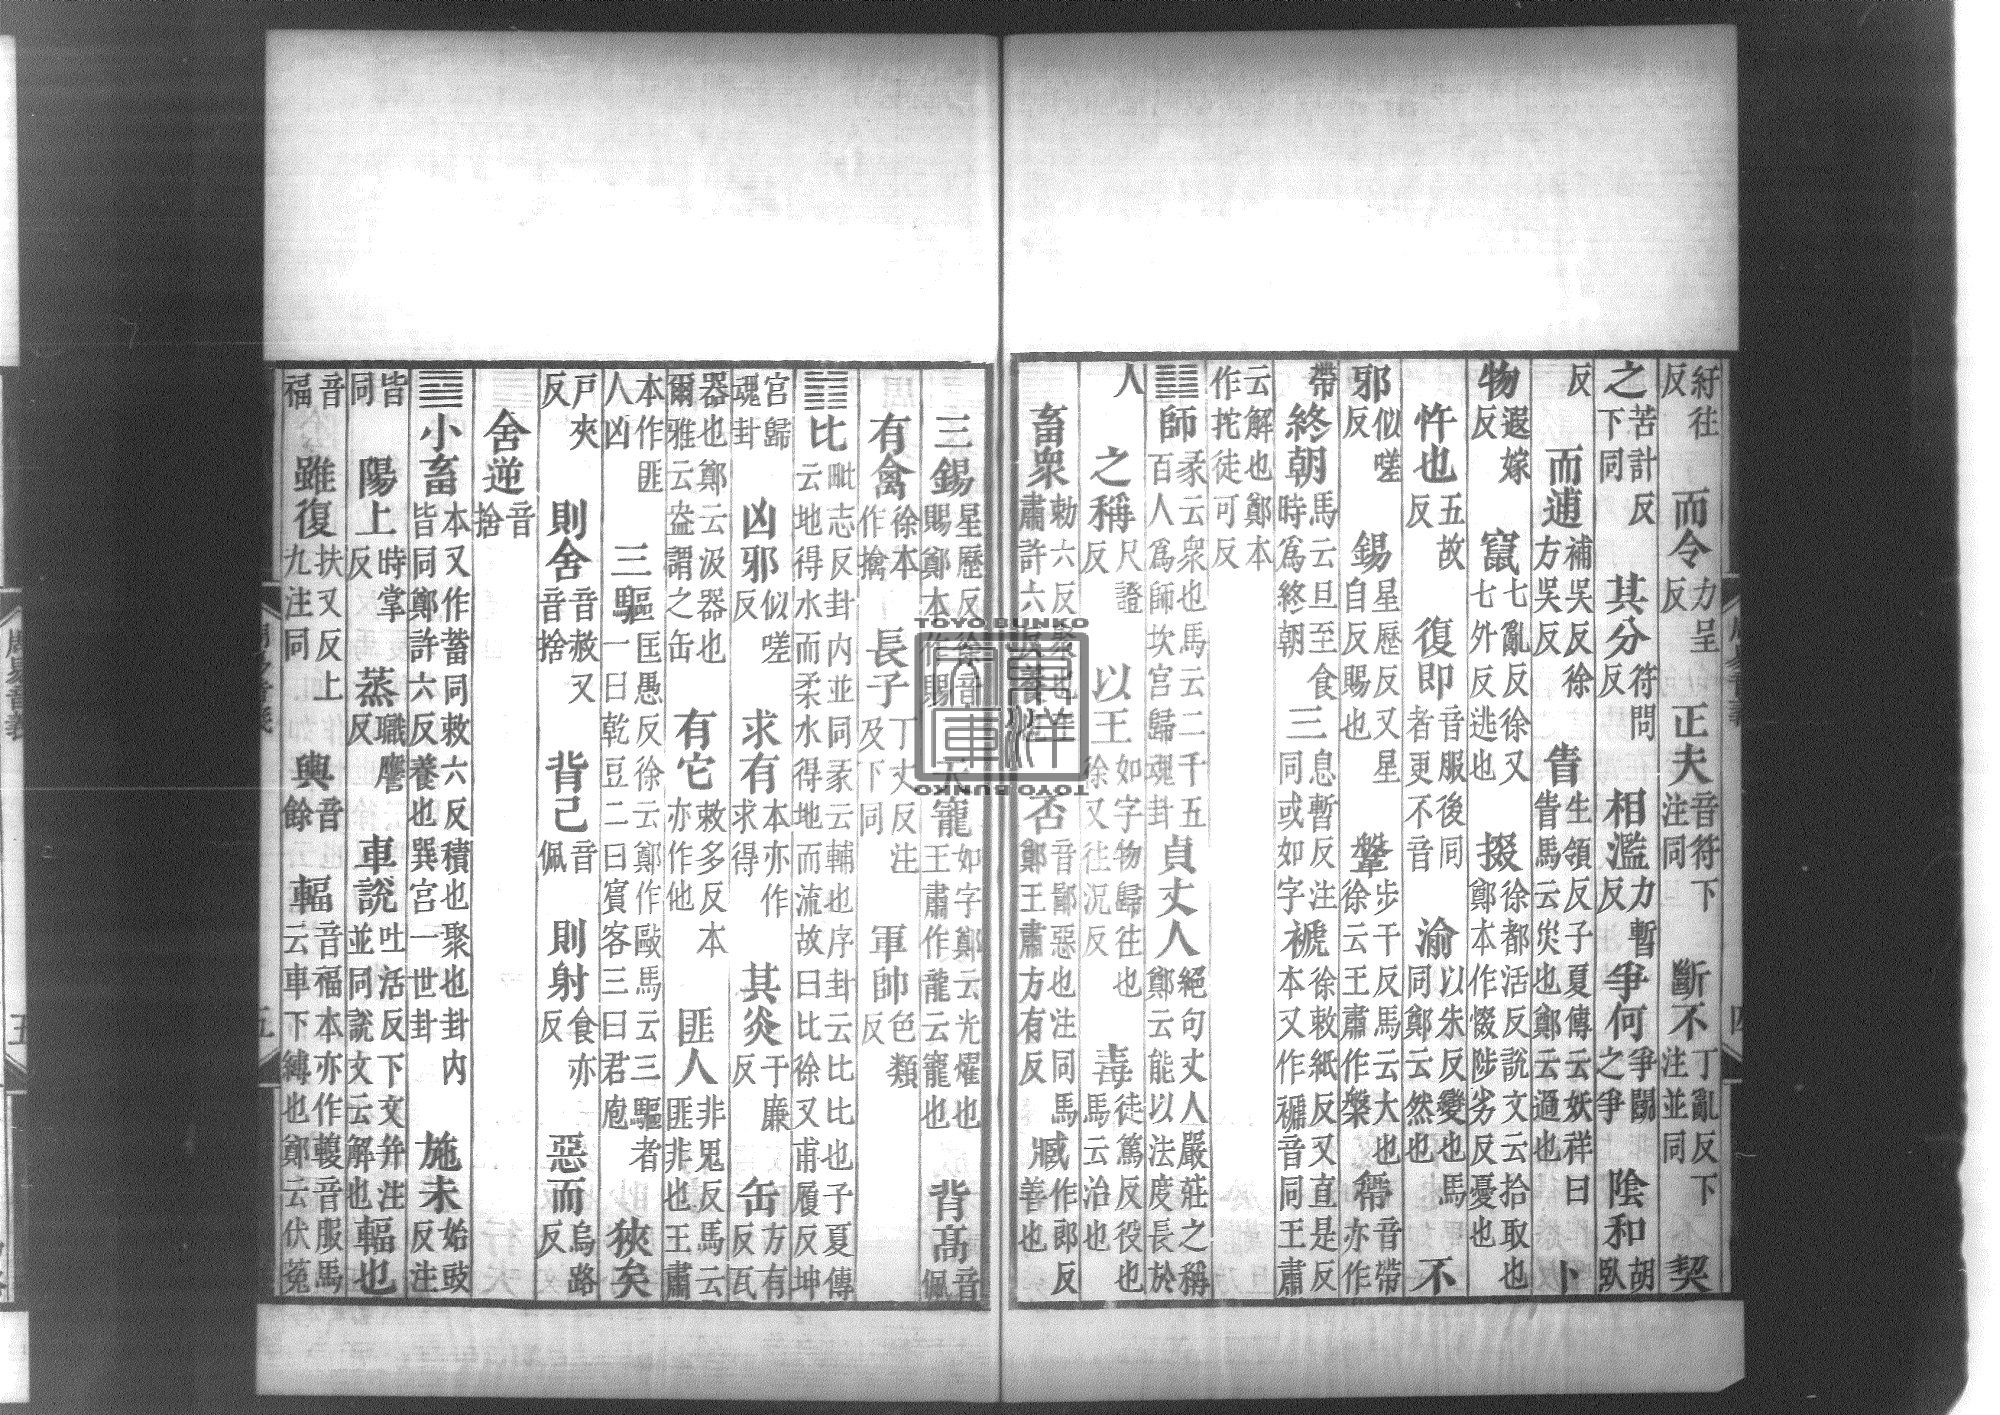 紆往反 而令力呈反 正夫音符下注同 斷不丁亂反下注並同 契
之苦計反下同 其分符問反 相濫力暫反 爭何爭鬬之爭 陰和胡臥
反 而逋補吳反徐方吳反 眚生領反子夏傳云妖祥曰眚馬云災也鄭云過也 下
物遐嫁反 竄七亂反徐又七外反逃也 掇徐都活反說文云拾取也鄭本作惙陟劣反憂也
忤也五故反 復即音服後同者更不音 渝以朱反變也馬同鄭云然也 不
邪似嗟反 錫星歷反又星自反賜也 鞶步干反馬云大也徐云王肅作槃 帶音帶亦作
帶 終朝馬云旦至食時為終朝 三息暫反注同或如字 褫徐敕紙反又直是反本又作褫音同王肅
云解也鄭本作拕徒可反
䷆師彖云衆也馬云二千五百人為師坎宮歸魂卦 貞丈人絕句丈人嚴莊之稱鄭云能以法度長於
人 之稱尺證反 以王如字物歸往也徐又往況反 毒徒篤反役也馬云治也
畜衆敕六反聚也王肅許六反養也 否音鄙惡也注同馬鄭王肅方有反 臧作郎反善也
三錫星歷反徐音賜鄭本作賜 天寵如字鄭云光燿也王肅作龍云寵也 背高音佩
有禽徐本作擒 長子丁丈反注及下同 軍帥色類反
䷇比毗志反卦內並同彖云輔也序卦云比比也子夏傳云地得水而柔水得地而流故曰比徐又甫履反坤
宮歸魂卦 凶邪似嗟反 求有本亦作求得 其炎于廉反 缶方有反瓦
器也鄭云汲器也爾雅云盎謂之缶 有它敕多反本亦作他 匪人非鬼反馬云匪非也王肅
本作匪人凶 三驅匡愚反徐云鄭作敺馬云三驅者一曰乾豆二曰賓客三曰君庖 狹矣
戶夾反 則舍音赦又音捨 背己音佩 則射食亦反 惡而烏路反
舍逆音捨
䷈小畜本又作蓄同敕六反積也聚也卦內皆同鄭許六反養也巽宮一世卦 施未始豉反注
皆同 陽上時掌反 蒸職膺反 車說吐活反下文并注並同說文云解也 輻也
音福 雖復扶又反上九注同 輿音餘 輻音福本亦作輹音服馬云車下縛也鄭云伏菟
周易音義
五
TOYO BUNKO
東洋文庫
TOYO BUNKO